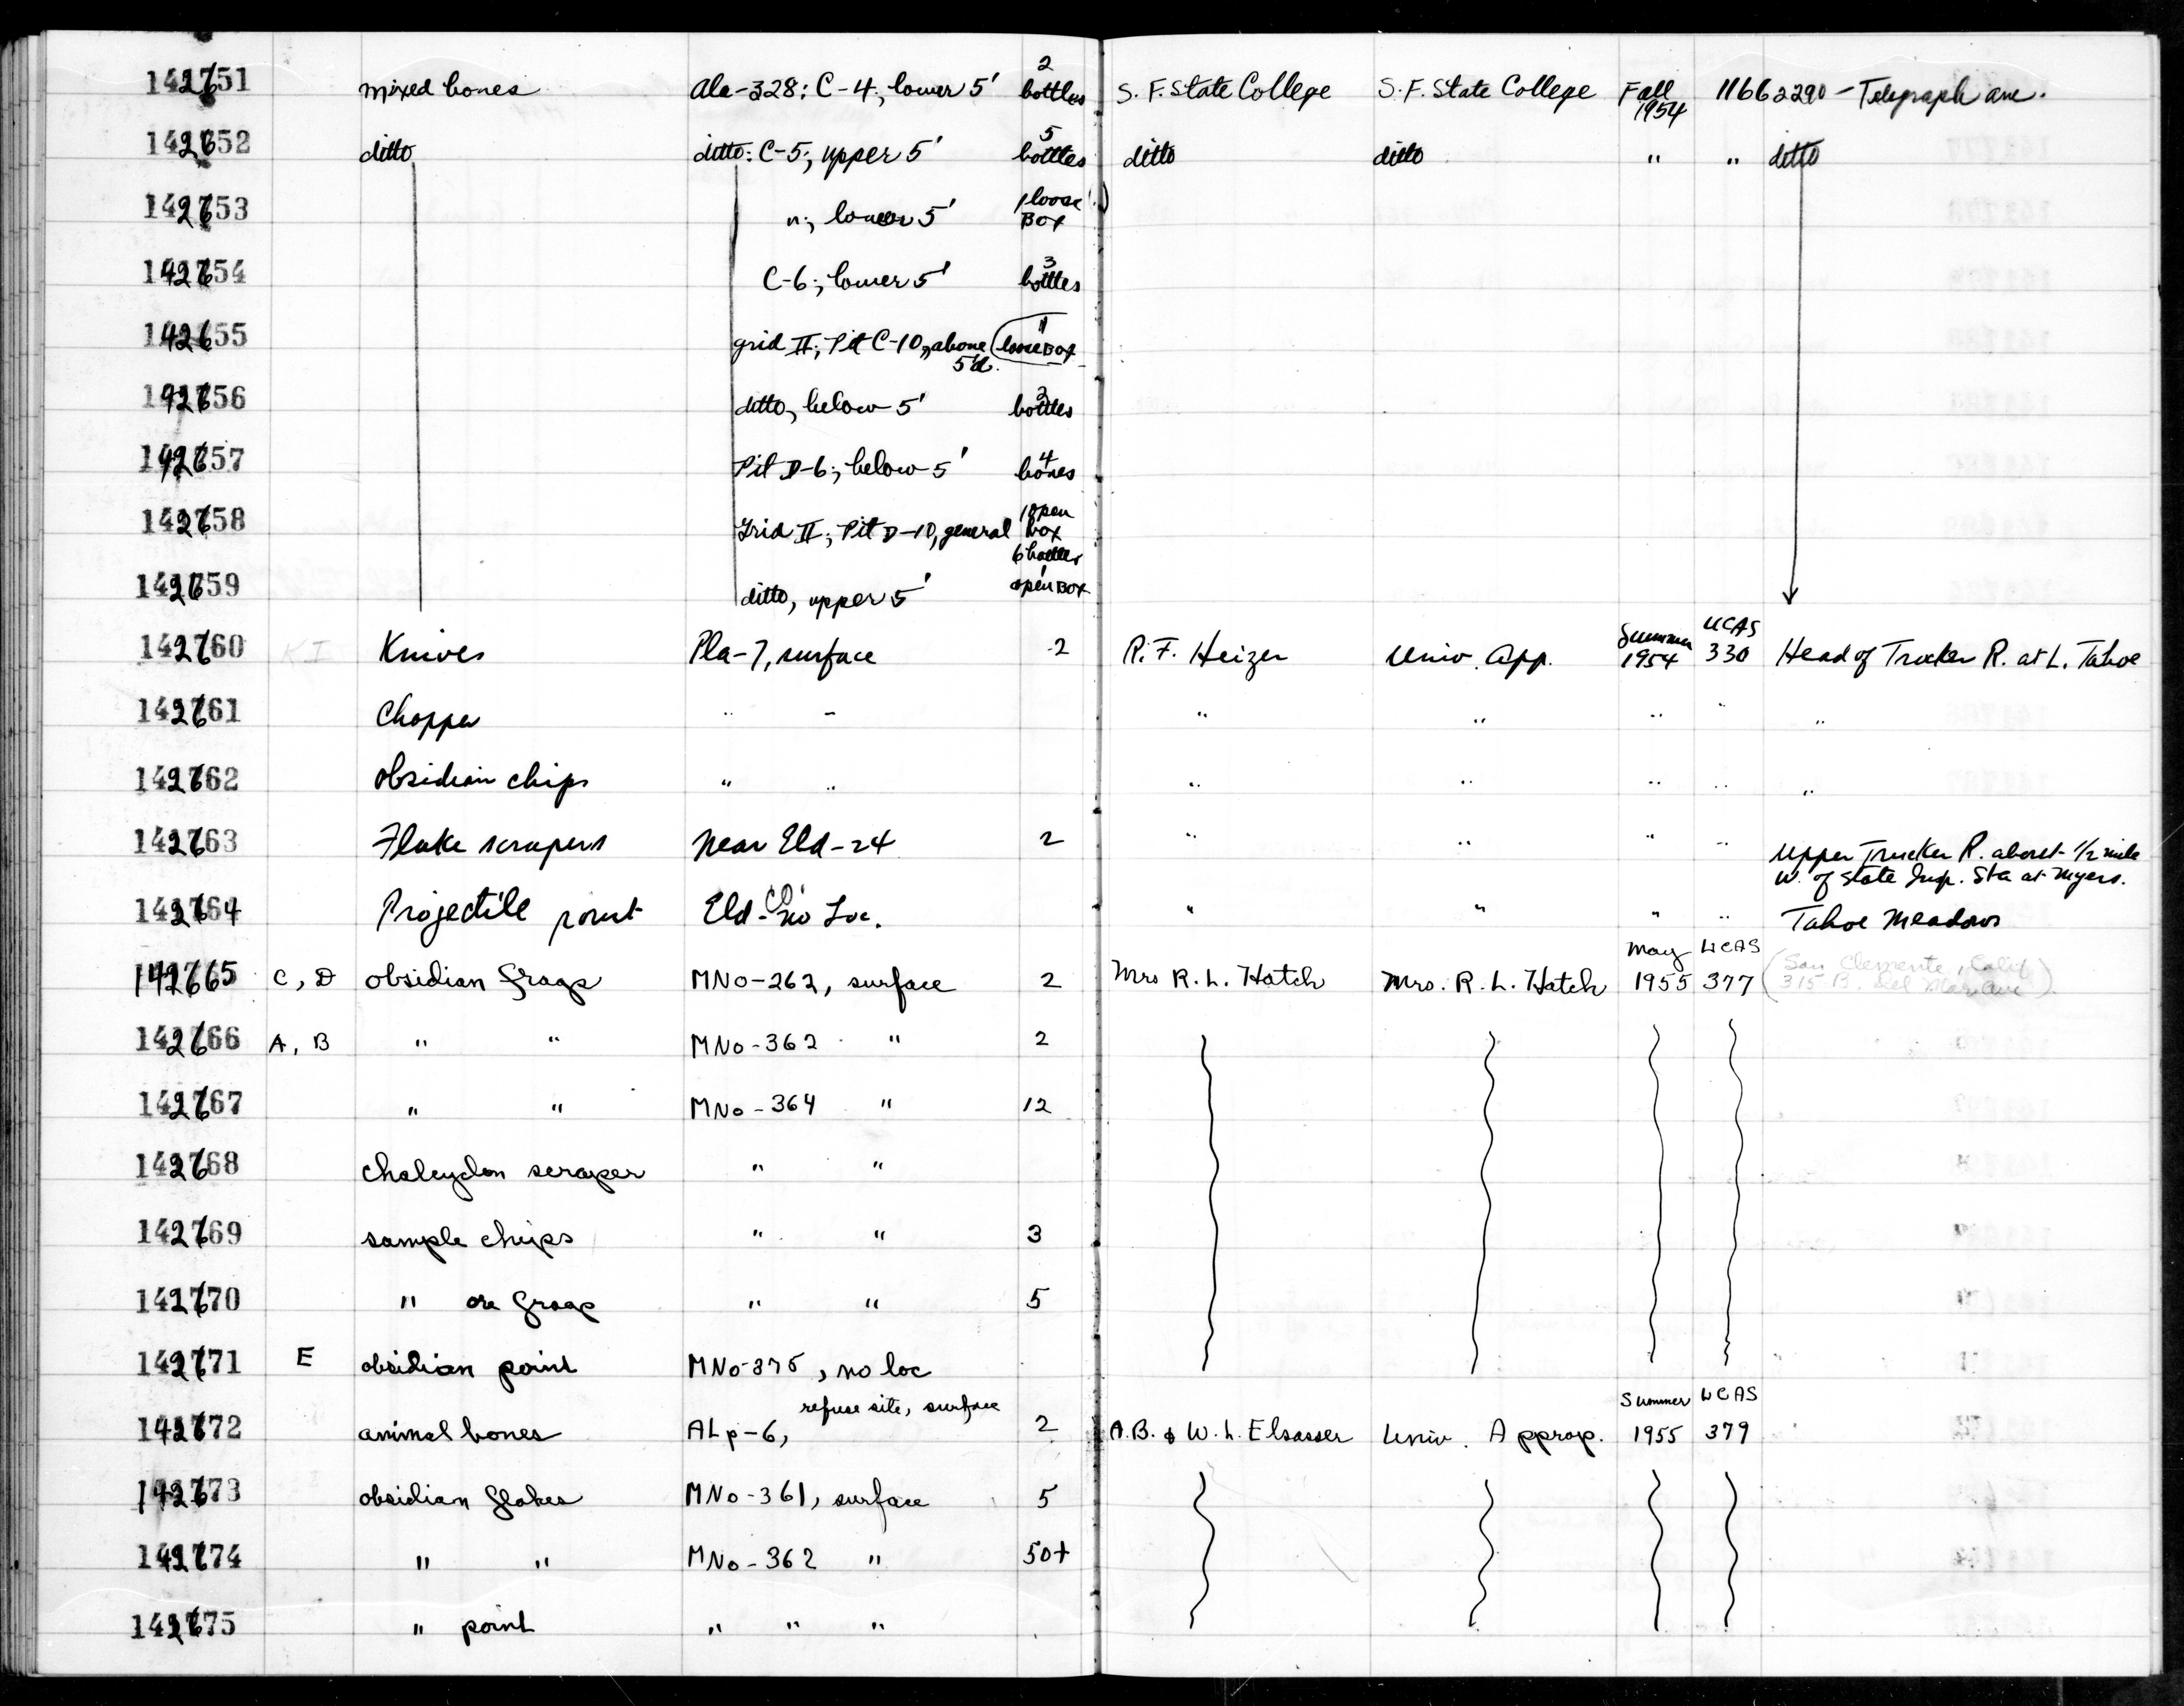 142651 mixed bones Ala-328: C-4; lower 5' 2 bottles S. F. State College S. F. State College Fall 1954 1166 2290 - Telegraph ave.
142652 ditto ditto: C-5; upper 5' 5 bottles ditto ditto " " ditto
142653 "; lower 5' 1 loose Box
142654 C-6; lower 5' 3 bottles
142655 grid II; Pit C-10, above 5'd. 1 loose Box
142656 ditto, below 5' bottles
142657 Pit D-6; below 5' 4 bones
142658 Grid II; Pit D-10, general 1 open box 6 bottles
142659 ditto, upper 5' 1 open Box
142660 KI Knives Pla-7, surface 2 R. F. Heizer Univ. App. Summer 1954 UCAS 330 Head of Truckee R. at L. Tahoe
142661 Chopper " " " " " " "
142662 obsidian chips " " " " " " "
142663 Flake scrapers Near Eld-24 2 " " " " Upper Truckee R. about 1/2 mile
W. of State Insp. Sta at Myers.
142664 Projectile point Eld-no Loc. " " " " Tahoe Meadows
142665 C, D obsidian frags MNo-262, surface 2 Mrs R. L. Hatch Mrs. R. L. Hatch May 1955 UCAS 377 (San Clemente, Calif
315 B. Del Mar Ave)
142666 A, B " " MNo-362 " 2
142667 " " MNo-364 " 12
142668 chalcydon scraper " "
142669 sample chips " " 3
142670 " ore frags " " 5
142671 E obsidian point MNo-375, no loc
142672 animal bones ALp-6, refuse site, surface 2 A.B. & W. L. Elsasser Univ. Approp. Summer 1955 UCAS 379
142673 obsidian flakes MNo-361, surface 5
142674 " " MNo-362 " 50+
142675 " point " " "